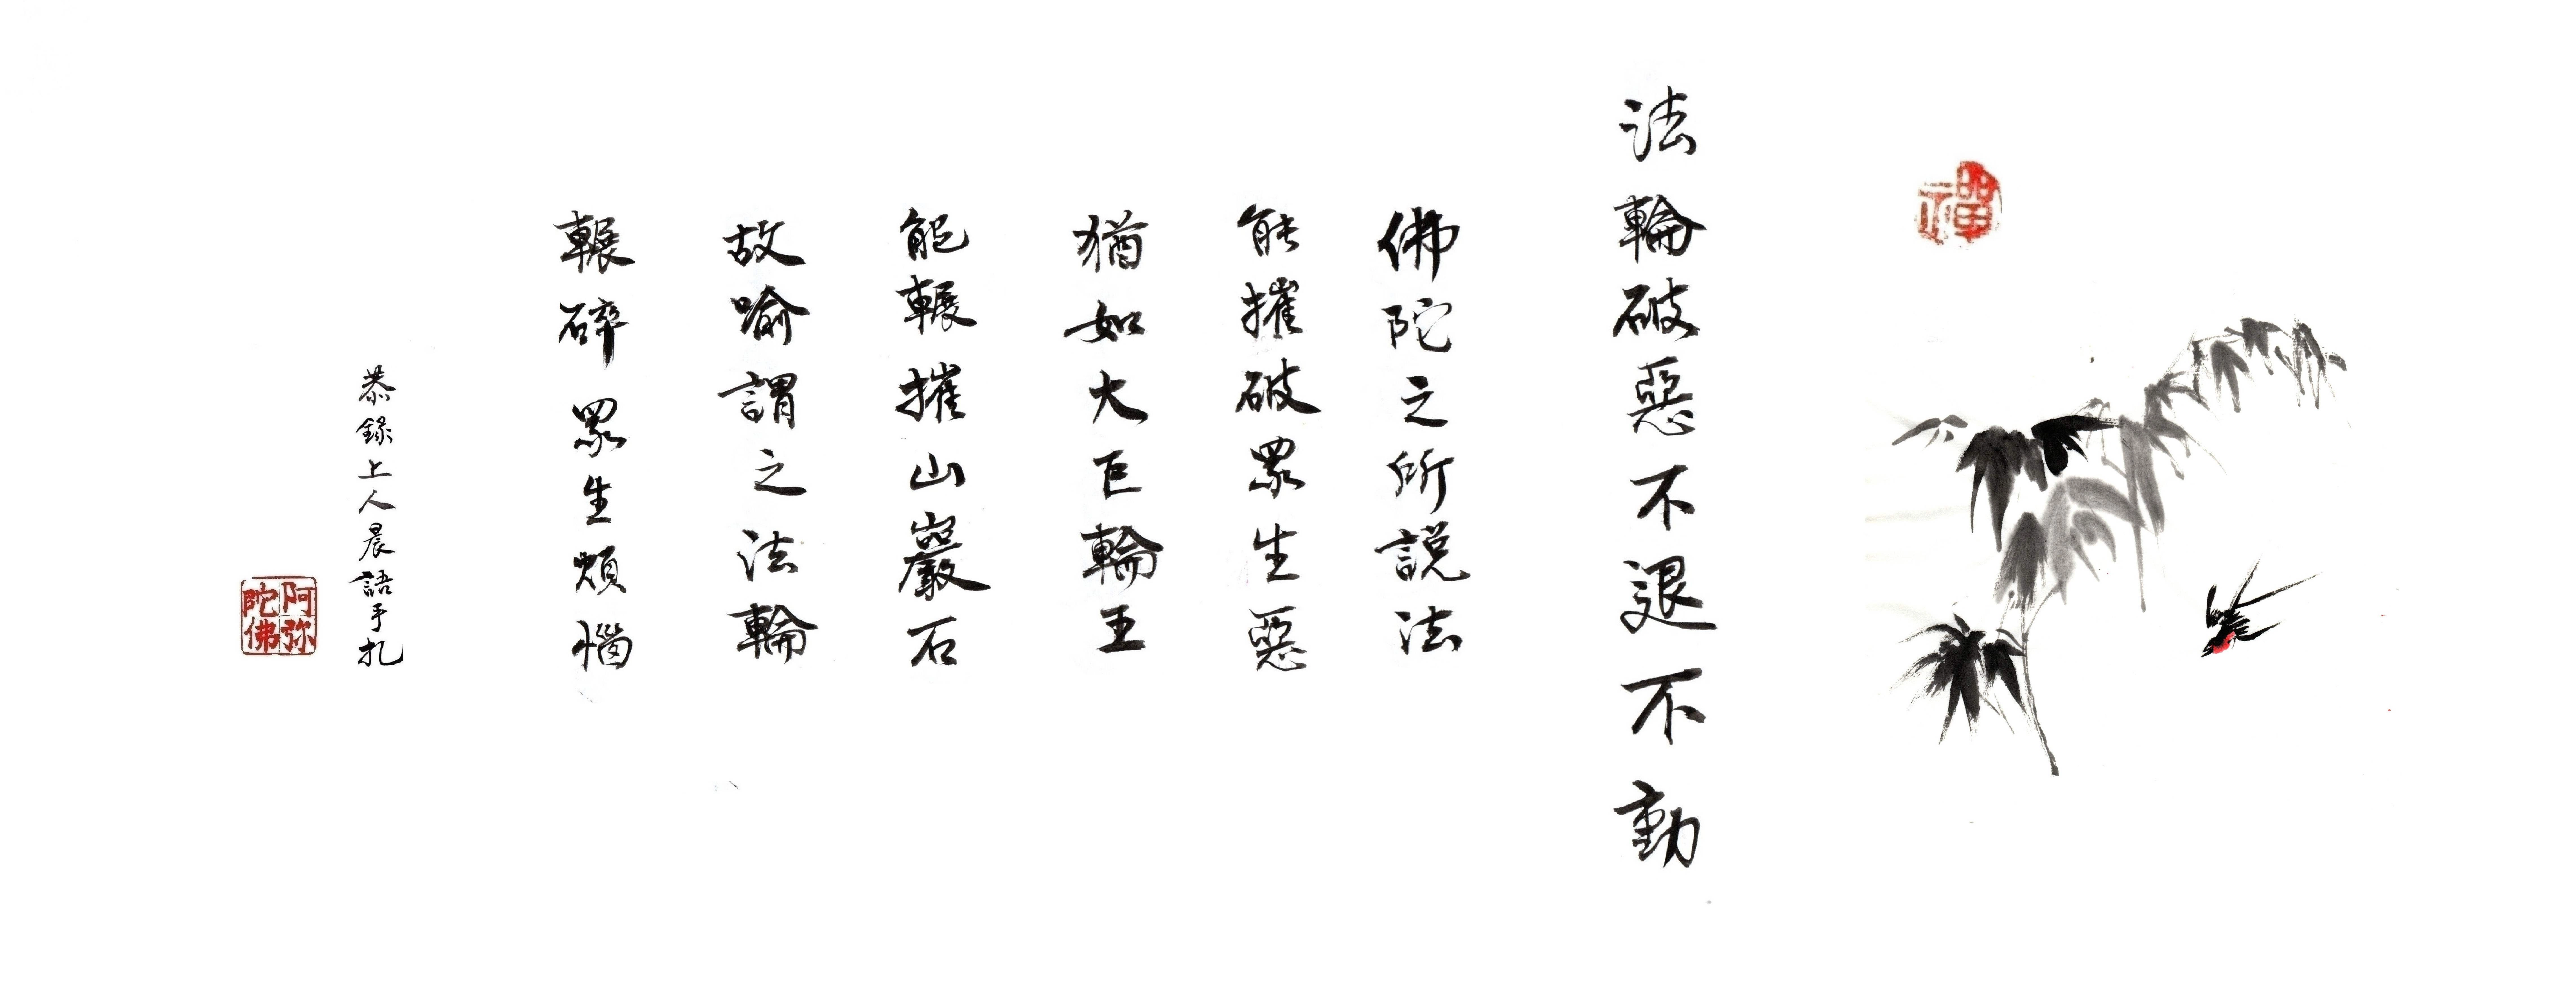 禪
法輪破惡不退不動
佛陀之所説法
能摧破眾生惡
猶如大巨輪王
能輾摧山巖石
故喻謂之法輪
輾碎眾生煩惱
恭錄上人晨語手札
阿弥
陀佛